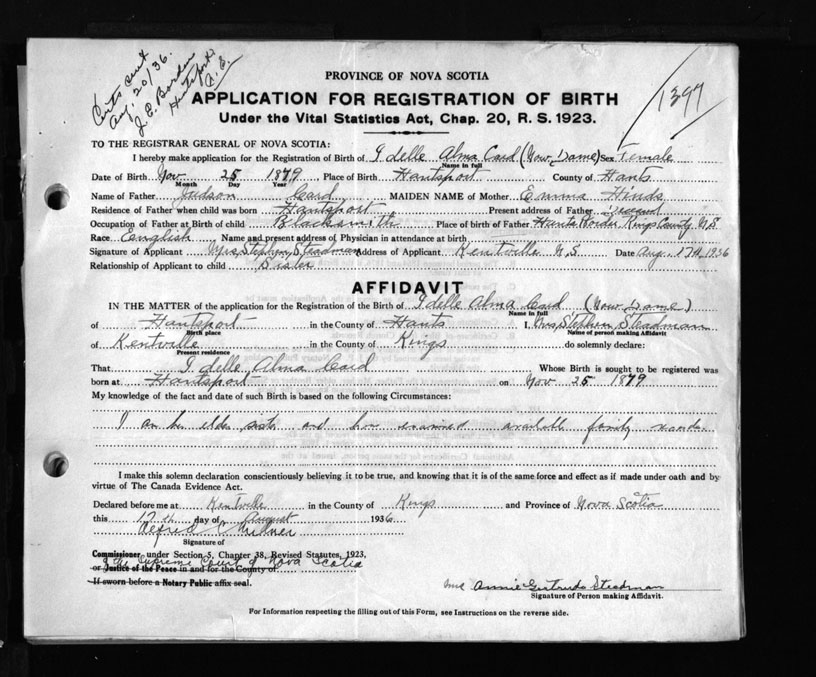 Certs sent
Aug. 20/36.
J. E. Borden
Hantsport
1397
PROVINCE OF NOVA SCOTIA
APPLICATION FOR REGISTRATION OF BIRTH
Under the Vital Statistics Act, Chap. 20, R. S. 1923.
TO THE REGISTRAR GENERAL OF NOVA SCOTIA:
I hereby make application for the Registration of Birth of Idelle Alma Card (Now Dame) Sex Female
Name in full
Date of Birth Nov 25 1879 Place of Birth Hantsport County of Hants
Month Day Year
Name of Father Judson Card MAIDEN NAME of Mother Emma Hinds
Residence of Father when child was born Hantsport Present address of Father
Occupation of Father at Birth of child Blacksmith Place of birth of Father Hants Border Kings County N.S.
Race English Name and present address of Physician in attendance at birth
Signature of Applicant Mrs Stephen Steadman Address of Applicant Kentville N.S. Date Aug. 17th, 1936
Relationship of Applicant to child Sister
AFFIDAVIT
IN THE MATTER of the application for the Registration of the Birth of Idelle Alma Card (Now Dame)
Name in full
of Hantsport in the County of Hants I, Mrs Stephen Steadman
Birth place Name of person making Affidavit
of Kentville in the County of Kings do solemnly declare:
Present residence
That Idelle Alma Card Whose Birth is sought to be registered was
born at Hantsport on Nov 25 1879
My knowledge of the fact and date of such Birth is based on the following Circumstances:
I am her elder sister and have examined available family records.
I make this solemn declaration conscientiously believing it to be true, and knowing that it is of the same force and effect as if made under oath and by
virtue of The Canada Evidence Act.
Declared before me at Kentville in the County of Kings and Province of Nova Scotia
this 17th day of August 1936
Alfred C Milner
Signature of
Commissioner under Section 5, Chapter 38, Revised Statutes, 1923,
of the Supreme Court of Nova Scotia
or Justice of the Peace in and for the County of
If sworn before a Notary Public affix seal.
Annie Gertrude Steadman
Signature of Person making Affidavit.
For Information respecting the filling out of this Form, see Instructions on the reverse side.